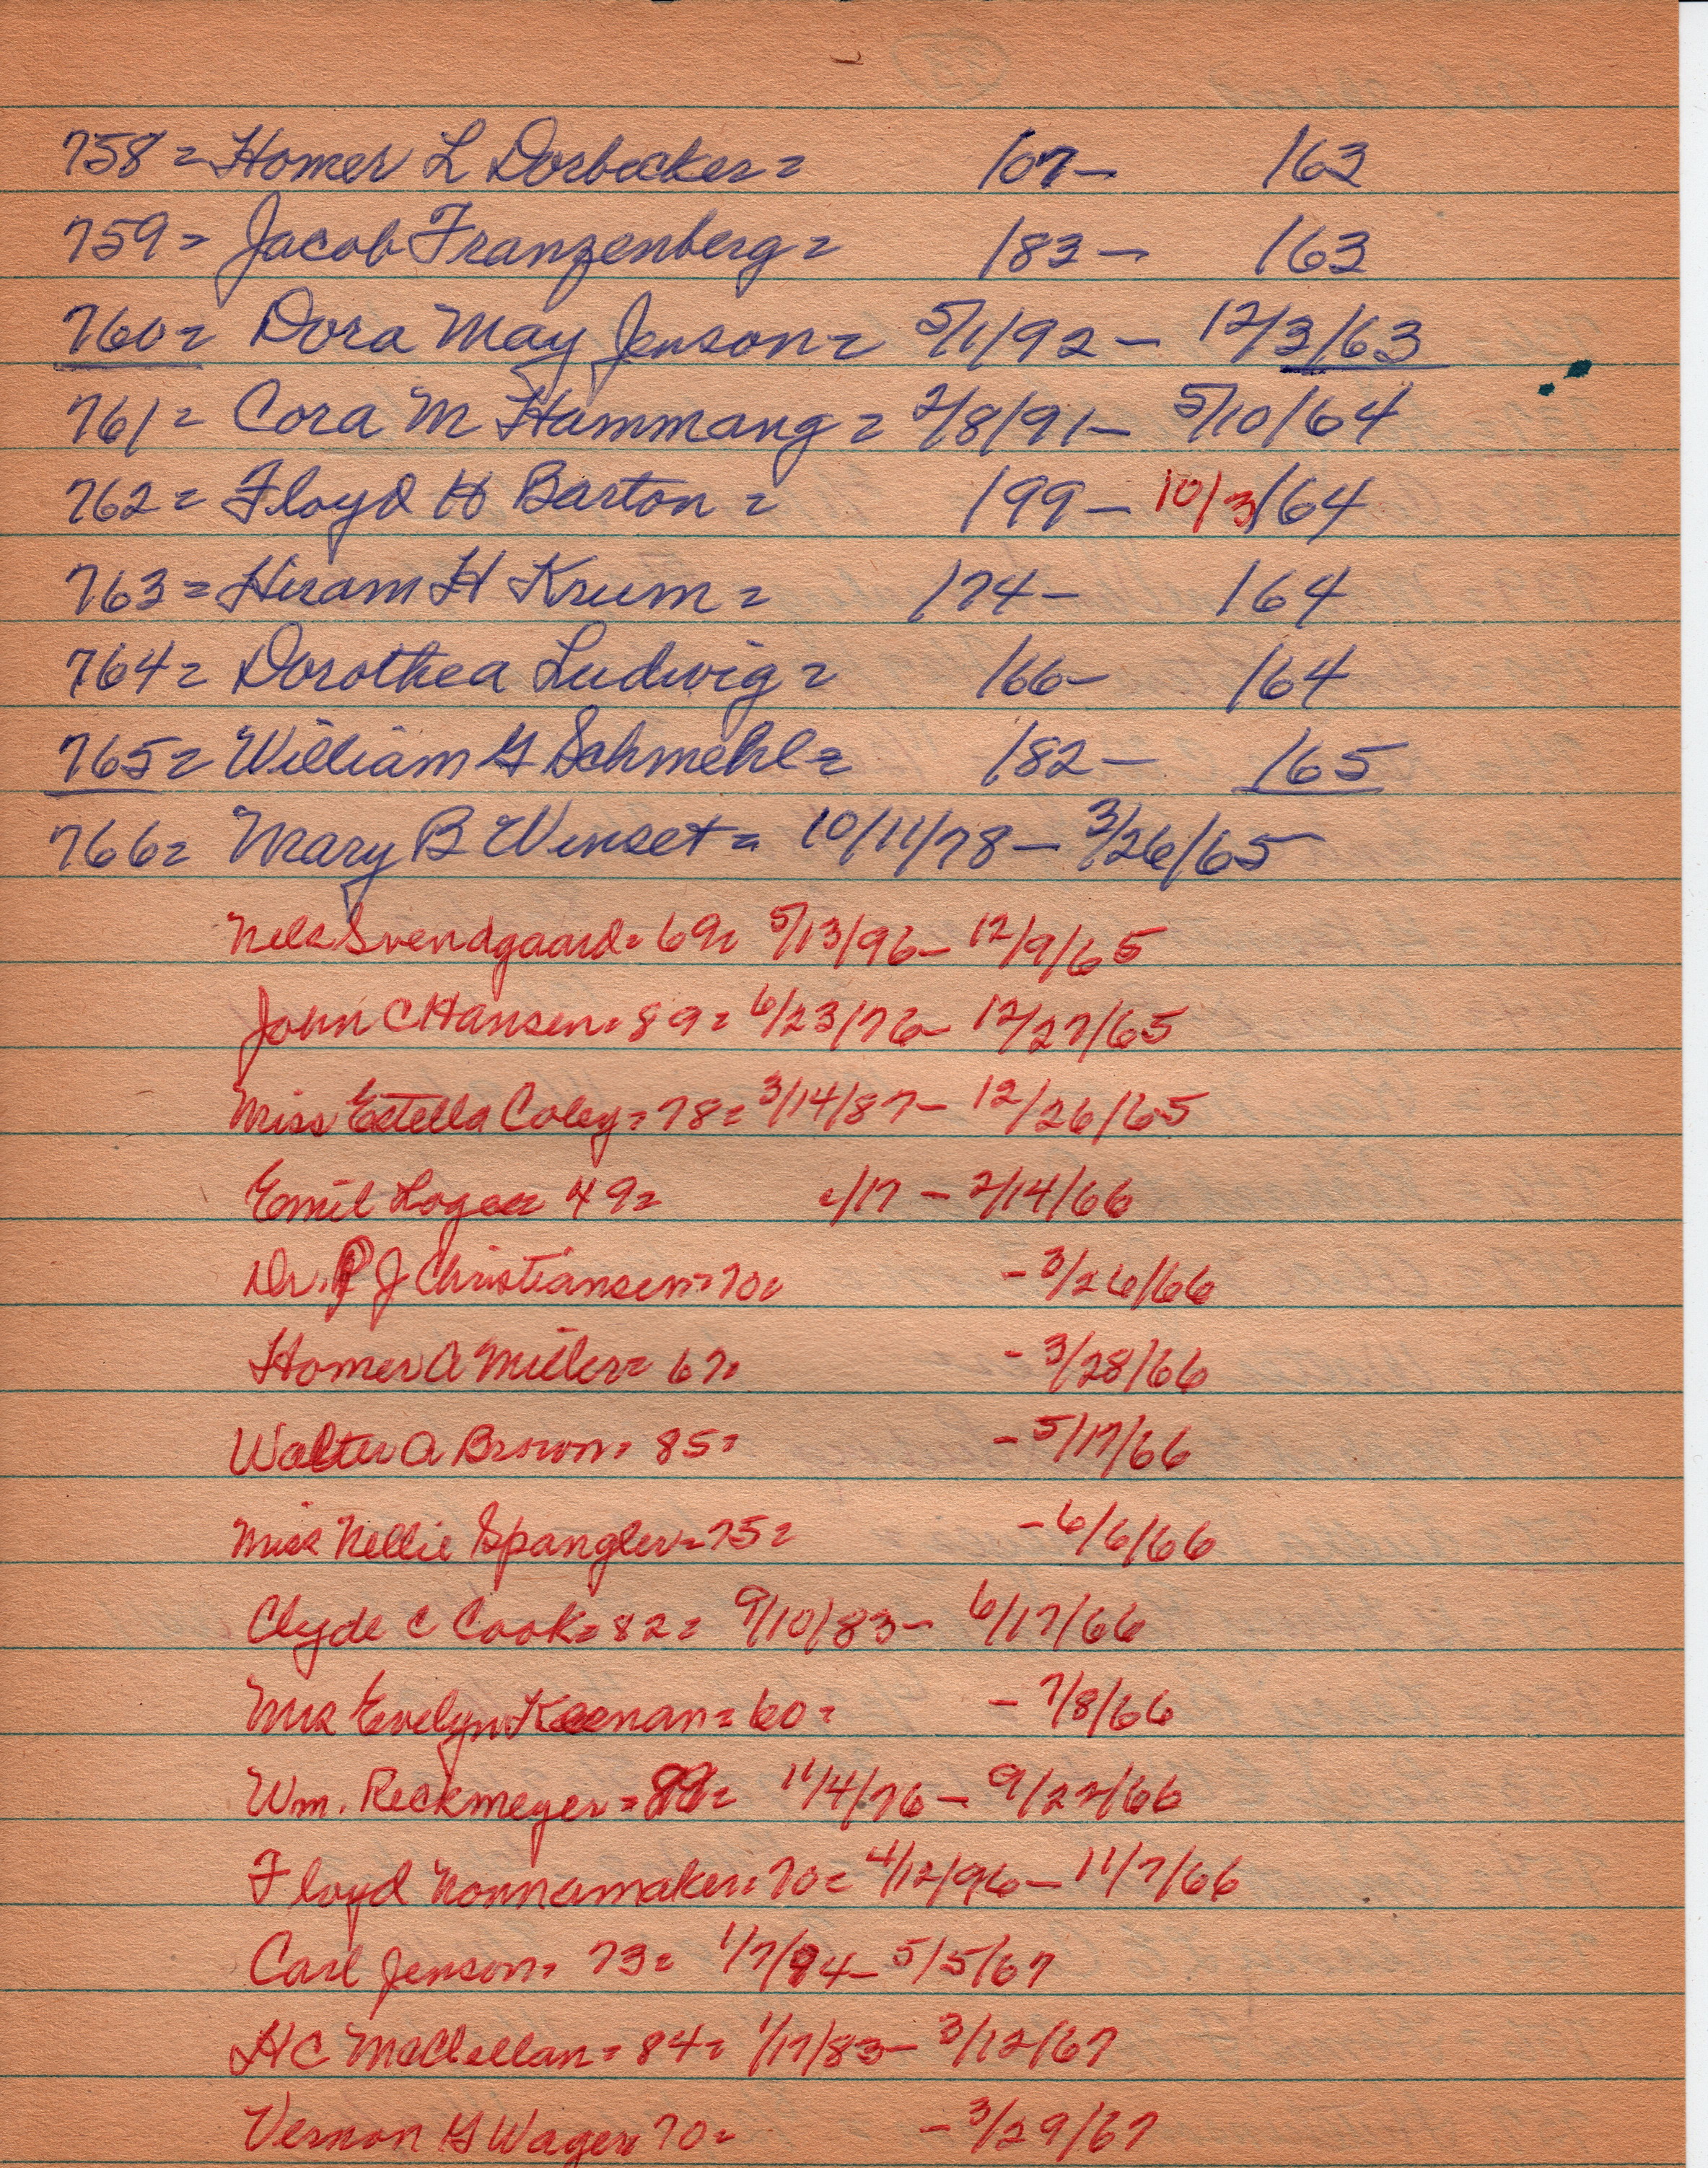 758 = Homer L Dorbecker = /07 - /63
759 = Jacob Franzenberg = /83 - /63
760 = Dora May Jenson = 5/1/92 - 12/3/63
761 = Cora M Hammang = 2/8/91 - 5/10/64
762 = Floyd H Barton = /99 - 10/3/64
763 = Hiram H Krum = /74 - /64
764 = Dorothea Ludwig = /66 - /64
765 = William G Schmehl = /82 - /65
766 = Mary B Winset = 10/11/78 - 3/26/65
Nels Svendgaard = 69 = 5/13/96 - 12/9/65
John C Hansen = 89 = 6/23/76 - 12/27/65
Miss Estella Coley = 78 = 3/14/87 - 12/26/65
Emil 49 = /17 - 2/14/66
Dr. P J Christiansen = 70 = - 3/26/66
Homer A Miller = 67 = - 3/28/66
Walter A Brown = 85 = - 5/17/66
Miss Nellie Spangler = 75 = - 6/6/66
Clyde C Cook = 82 = 9/10/83 - 6/17/66
Mrs Evelyn Keenan = 60 = - 7/8/66
Wm. Reckmeyer = = 11/4/76 - 9/22/66
Floyd Nonnamaker = 70 = 4/12/96 - 11/7/66
Carl Jenson = 73 = 1/7/94 - 5/5/67
HC McClellan = 84 = 1/17/83 - 3/12/67
Vernon G Wager = 70 = - 3/29/67